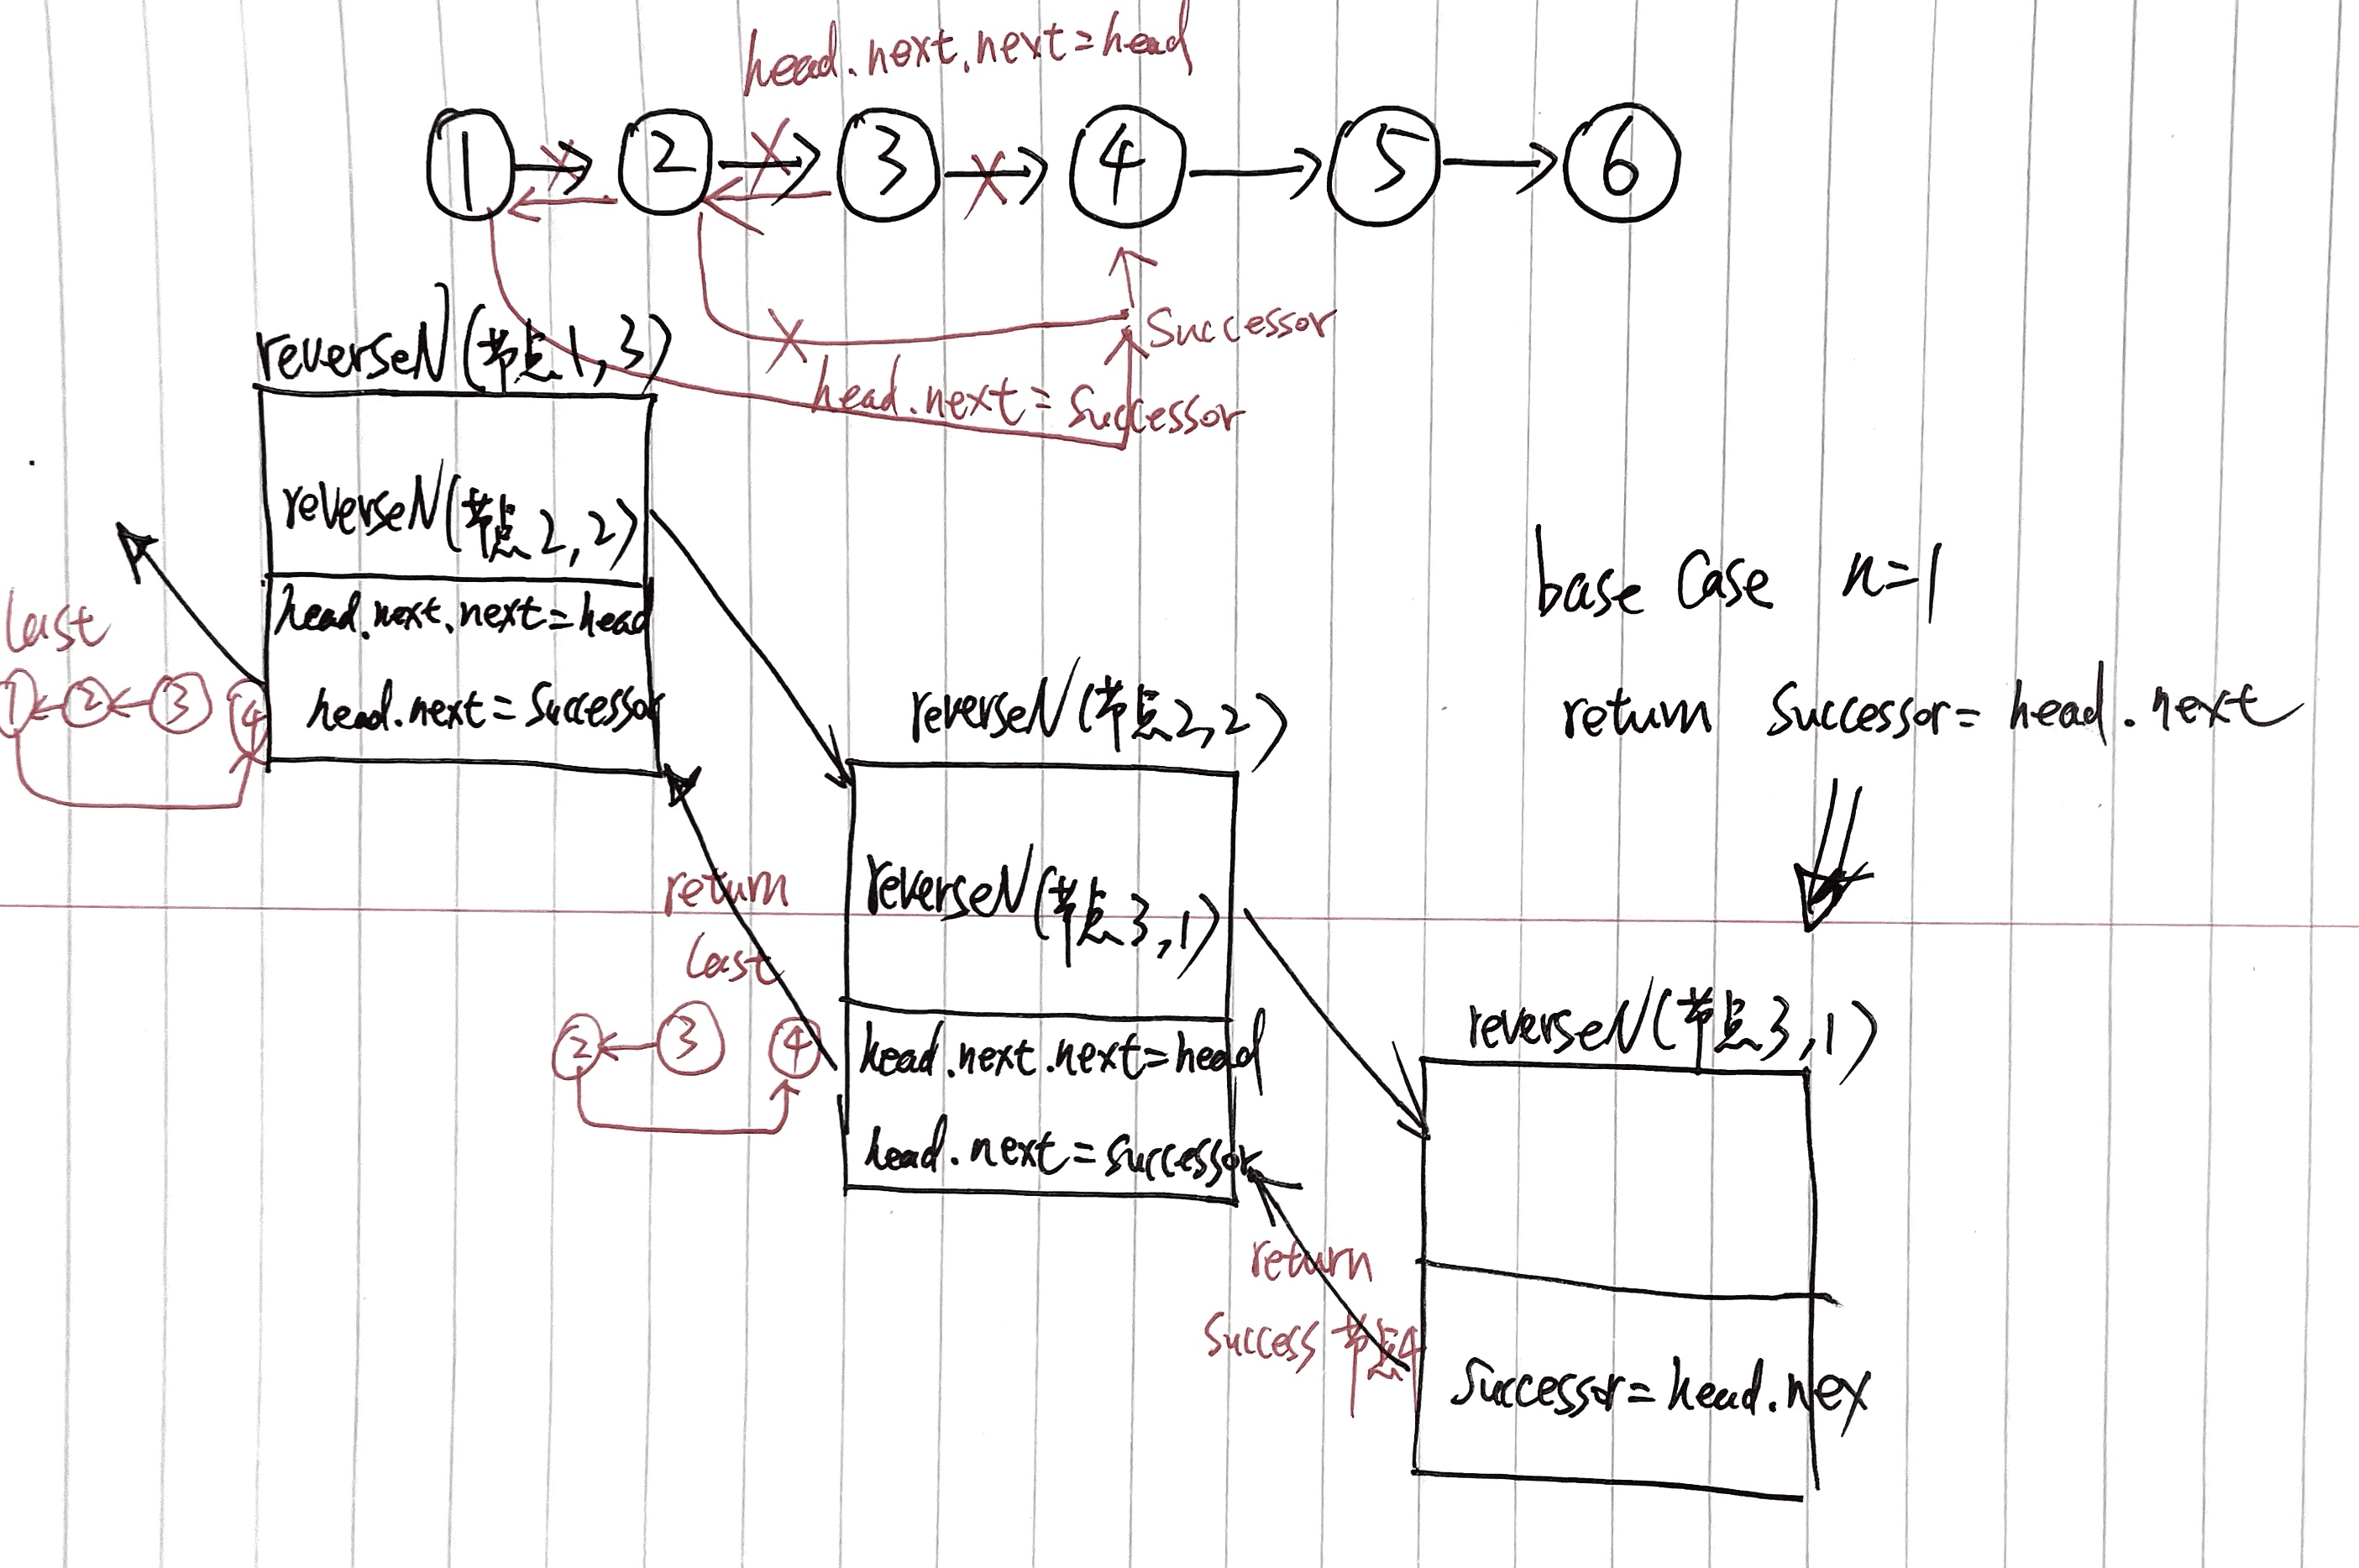 head.next.next=head
1 2 3 4 5 6
Successor
reverseN(节点1,3)
head.next=Successor
reverseN(节点2,2)
head.next.next=head
head.next=Successor
last
1 2 3 4
base Case n=1
return Successor=head.next
reverseN(节点2,2)
reverseN(节点3,1)
return
last
2 3 4
head.next.next=head
head.next=successor
reverseN(节点3,1)
return
Success 节点4
Successor=head.nex